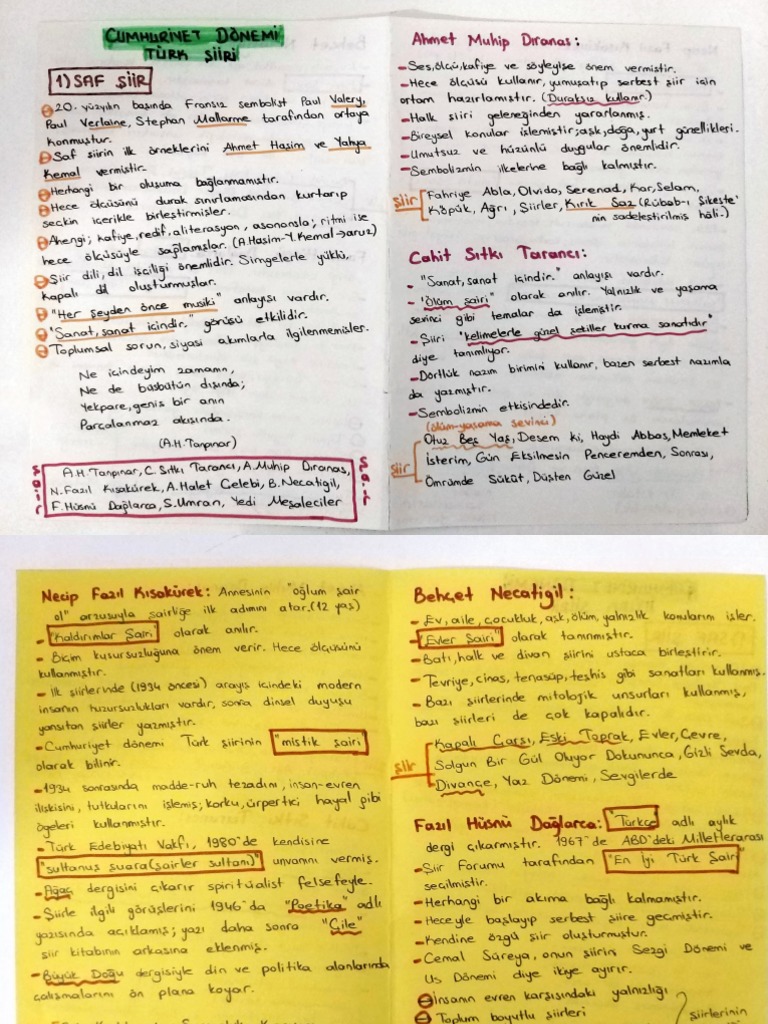 CUMHURİYET DÖNEMİ
TÜRK ŞİİRİ
1) SAF ŞİİR
20. yüzyılın başında Fransız sembolist Paul Valery,
Paul Verlaine, Stephan Mallarme tarafından ortaya
konmuştur.
Saf şiirin ilk örneklerini Ahmet Haşim ve Yahya
Kemal vermiştir.
Herhangi bir oluşuma bağlanmamıştır.
Hece ölçüsünü durak sınırlamasından kurtarıp
seçkin içerikle birleştirmişler.
Ahengi; kafiye, redif, aliterasyon, asonansla; ritmi ise
hece ölçüsüyle sağlamışlar. (A.Haşim-Y.Kemal→aruz)
Şiir dili, dil işçiliği önemlidir. Simgelerle yüklü,
kapalı dil oluşturmuşlar.
"Her şeyden önce musiki" anlayışı vardır.
"Sanat, sanat içindir." görüşü etkilidir.
Toplumsal sorun, siyasi akımlarla ilgilenmemişler.
Ne içindeyim zamanın,
Ne de büsbütün dışında;
Yekpare, geniş bir anın
Parçalanmaz akışında.
(A.H.Tanpınar)
A.H.Tanpınar, C.Sıtkı Tarancı, A.Muhip Dıranas,
N.Fazıl Kısakürek, A.Halet Çelebi, B.Necatigil,
F.Hüsnü Dağlarca, S.Umran, Yedi Meşaleciler
Ahmet Muhip Dıranas:
- Ses, ölçü, kafiye ve söyleyişe önem vermiştir.
- Hece ölçüsü kullanır, yumuşatıp serbest şiir için
ortam hazırlamıştır. (Duraksız kullanır.)
- Halk şiiri geleneğinden yararlanmış.
- Bireysel konular işlemiştir; aşk, doğa, yurt güzellikleri.
- Umutsuz ve hüzünlü duygular önemlidir.
- Sembolizmin ilkelerine bağlı kalmıştır.
şiir
Fahriye Abla, Olvido, Serenad, Kar, Selam,
Köpük, Ağrı, Şiirler, Kırık Saz (Rübab-ı Şikeste'
nin sadeleştirilmiş hâli.)
Cahit Sıtkı Tarancı:
- "Sanat, sanat içindir." anlayışı vardır.
- "Ölüm şairi" olarak anılır. Yalnızlık ve yaşama
sevinci gibi temalar da işlemiştir.
- Şiiri "kelimelerle güzel şekiller kurma sanatıdır"
diye tanımlıyor.
- Dörtlük nazım birimini kullanır, bazen serbest nazımla
da yazmıştır.
- Sembolizmin etkisindedir.
(ölüm-yaşama sevinci)
şiir
Otuz Beş Yaş, Desem ki, Haydi Abbas, Memleket
İsterim, Gün Eksilmesin Penceremden, Sonrası,
Ömrümde Sükût, Düşten Güzel
Necip Fazıl Kısakürek: Annesinin "oğlum şair
ol" arzusuyla şairliğe ilk adımını atar. (12 yaş)
- "Kaldırımlar Şairi" olarak anılır.
- Biçim kusursuzluğuna önem verir. Hece ölçüsünü
kullanmıştır.
- İlk şiirlerinde (1934 öncesi) arayış içindeki modern
insanın huzursuzlukları vardır, sonra dinsel duyuşu
yansıtan şiirler yazmıştır.
- Cumhuriyet dönemi Türk şiirinin "mistik şairi"
olarak bilinir.
- 1934 sonrasında madde-ruh tezadını, insan-evren
ilişkisini, tutkularını işlemiş; korku, ürpertici hayal gibi
ögeleri kullanmıştır.
- Türk Edebiyatı Vakfı, 1980'de kendisine
"sultanuş şuara (şairler sultanı)" unvanını vermiş.
- Ağaç dergisini çıkarır spiritüalist felsefeyle.
- Şiirle ilgili görüşlerini 1946'da "Poetika" adlı
yazısında açıklamış; yazı daha sonra "Çile"
şiir kitabının arkasına eklenmiş.
- Büyük Doğu dergisiyle din ve politika alanlarında
çalışmalarını ön plana koyar.
Behçet Necatigil:
- Ev, aile, çocukluk, aşk, ölüm, yalnızlık konularını işler.
- "Evler Şairi" olarak tanınmıştır.
- Batı, halk ve divan şiirini ustaca birleştirir.
- Tevriye, cinas, tenasüp, teşhis gibi sanatları kullanmış.
- Bazı şiirlerinde mitolojik unsurları kullanmış,
bazı şiirleri de çok kapalıdır.
şiir
Kapalı Çarşı, Eski Toprak, Evler, Çevre,
Solgun Bir Gül Oluyor Dokununca, Gizli Sevda,
Divançe, Yaz Dönemi, Sevgilerde
Fazıl Hüsnü Dağlarca: "Türkçe" adlı aylık
dergi çıkarmıştır. 1967'de ABD'deki Milletlerarası
- Şiir Forumu tarafından "En İyi Türk Şairi"
seçilmiştir.
- Herhangi bir akıma bağlı kalmamıştır.
- Heceyle başlayıp serbest şiire geçmiştir.
- Kendine özgü şiir oluşturmuştur.
- Cemal Süreya, onun şiirini Sezgi Dönemi ve
Us Dönemi diye ikiye ayırır.
İnsanın evren karşısındaki yalnızlığı
Toplum boyutlu şiirleri
şiirlerinin